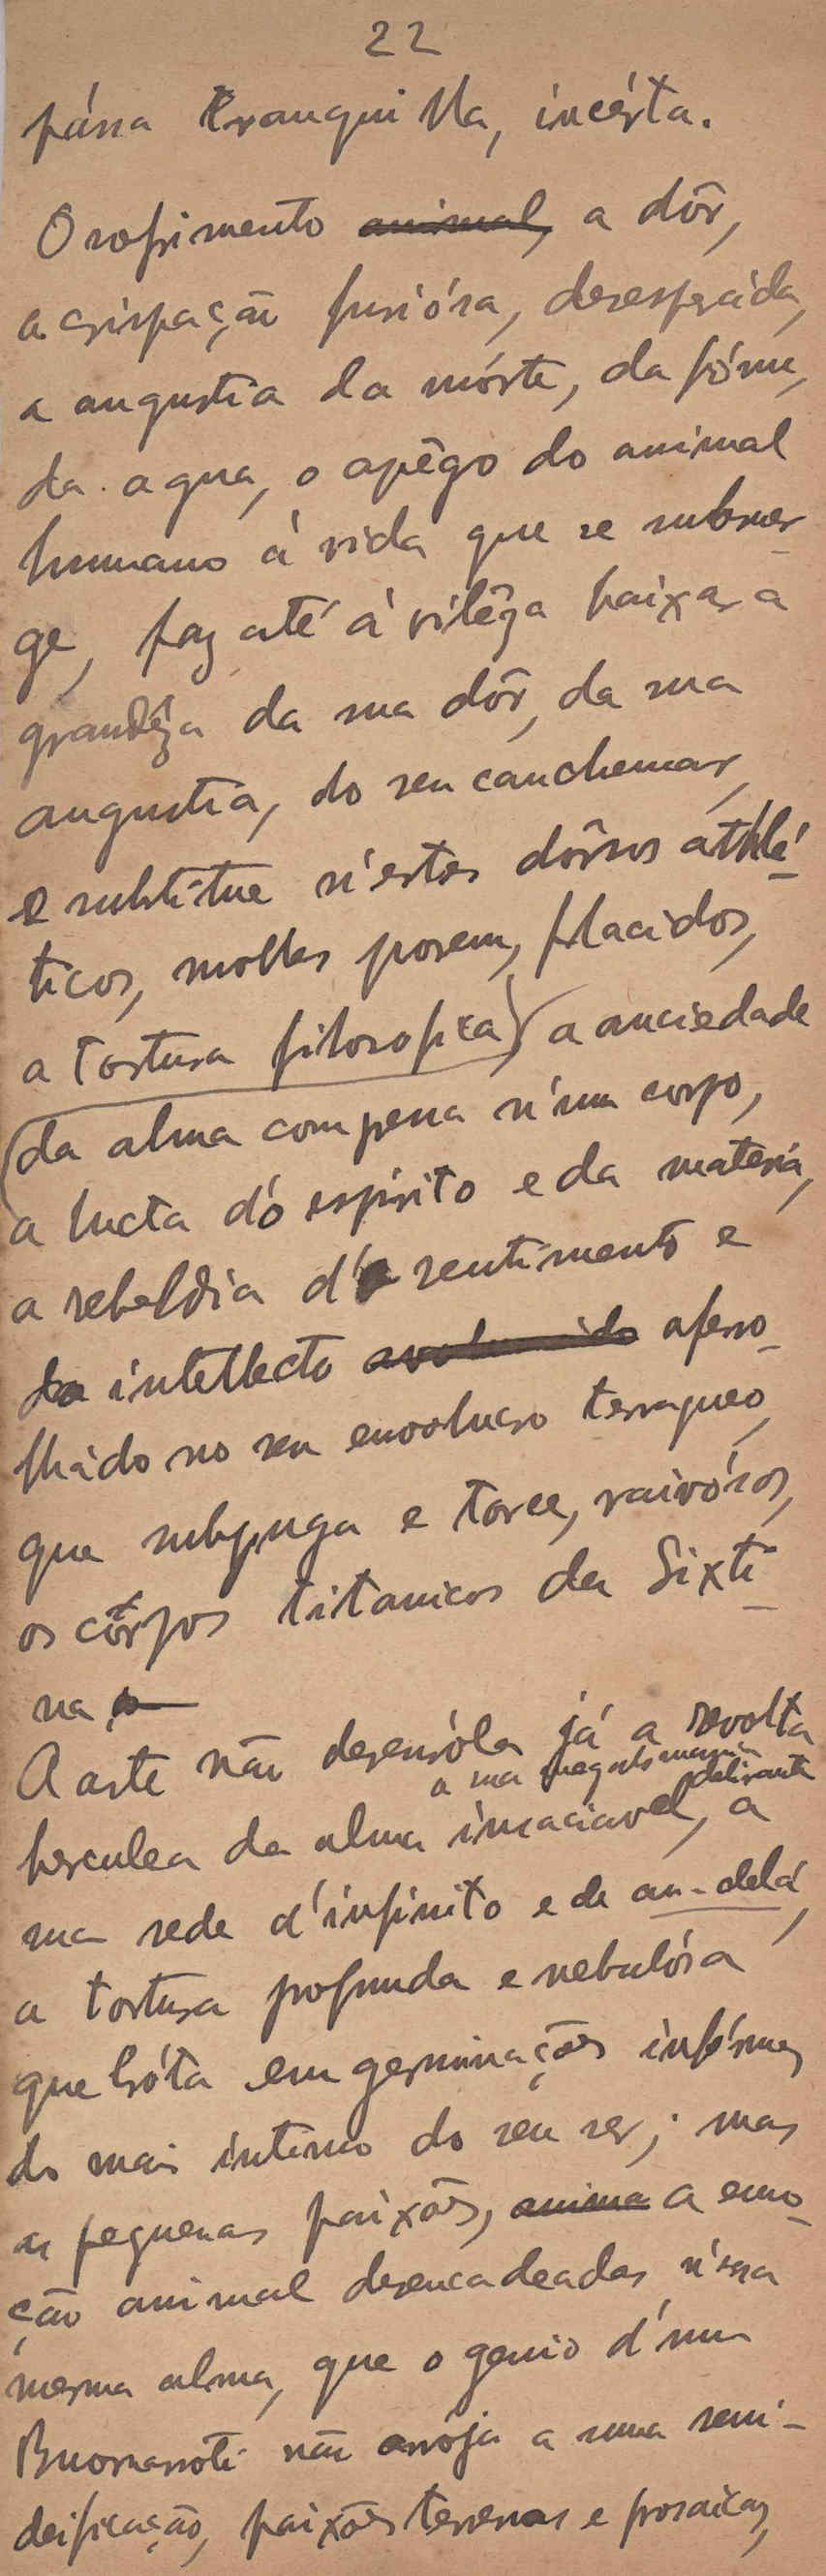 22
pássa tranquilla, incérta.
O sofrimento animal, a dôr,
a crispação furiósa, desesperáda,
a angustia da mórte, da fóme,
da agua, o apêgo do animal
humano á vida que se submer-
ge, faz até á vilêza baixar a
grandêza da sua dôr, da sua
angustia, do seu cauchemar,
e substitue n'estes dôrsos athlé-
ticos, molles porem, flacidos,
a tortura filosofica, a anciedade
da alma compressa n'um corpo,
a lucta do espirito e da materia,
a rebeldia do sentimento e
do intellecto aferro-
lhádo no seu envolucro terraqueo,
que subjuga e torce, raivósos,
os córpos titanicos da Sixti-
na
A arte não desenróla já a revolta
a sua megalomania delirante
herculea da alma insaciavel, a
sua sede d'infinito e de au-delá,
a tortura profunda e nebulósa
que bróta em germinações infórmes
do mais intimo do seu ser; mas
as pequenas paixões, anima a emo-
ção animal desencadeadas n'essa
mesma alma, que o genio d'um
Buonarroti não arrója a uma semi-
deificação, paixões terrenas e prosaicas,